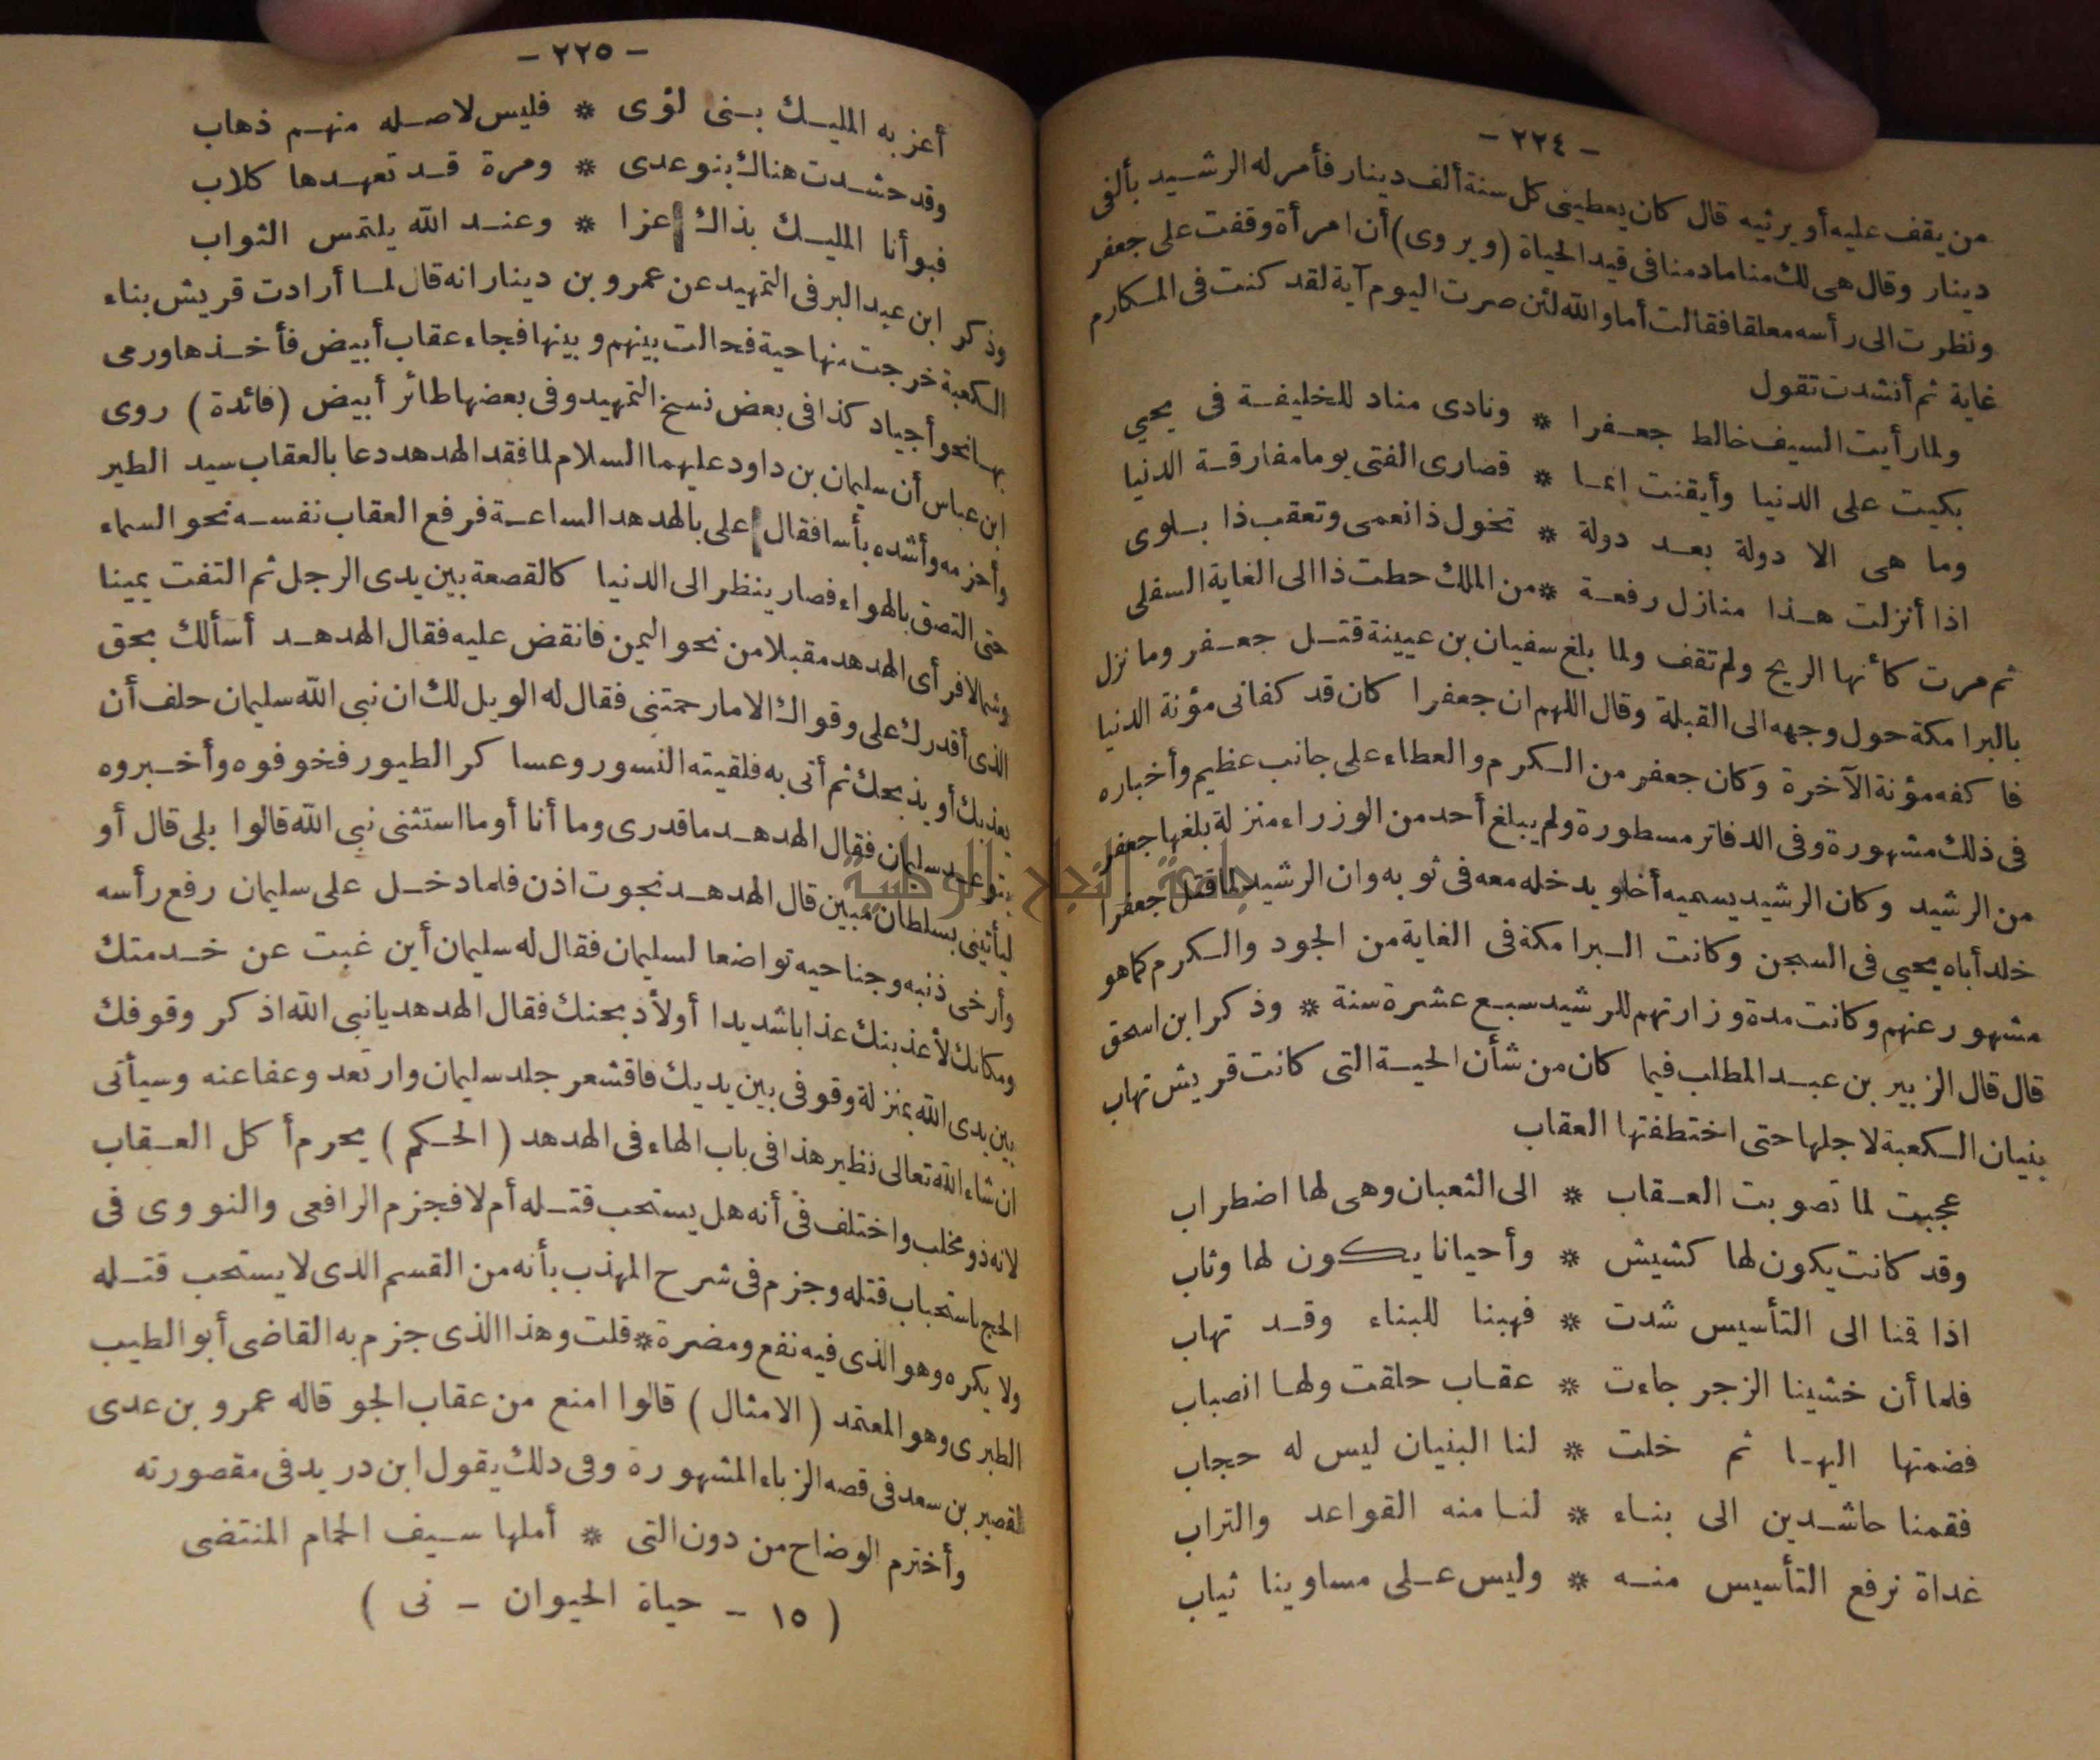 - ٢٢٤ -
من يقف عليه أو يرثيه قال كان يعطينى كل سنة ألف دينار فأمر له الرشيد بألفى
دينار وقال هى لك منا ما دمنا فى قيد الحياة (ويروى) أن امرأة وقفت على جعفر
ونظرت الى رأسه معلقا فقالت أما والله لئن صرت اليوم آية لقد كنت فى المكارم
غاية ثم أنشدت تقول
ولما رأيت السيف خالط جعفرا * ونادى مناد للخليفة فى يحيى
بكيت على الدنيا وأيقنت انما * قصارى الفتى يوما مفارقة الدنيا
وما هى الا دولة بعد دولة * تخول ذا نعمى وتعقب ذا بلوى
اذا أنزلت هذا منازل رفعة * من الملك حطت ذا الى الغاية السفلى
ثم مرت كأنها الريح ولم تقف ولما بلغ سفيان بن عيينة قتل جعفر وما نزل
بالبرامكة حول وجهه الى القبلة وقال اللهم ان جعفرا كان قد كفانى مؤنة الدنيا
فاكفه مؤنة الآخرة وكان جعفر من الكرم والعطاء على جانب عظيم وأخباره
فى ذلك مشهورة وفى الدفاتر مسطورة ولم يبلغ أحد من الوزراء منزلة بلغها جعفر
من الرشيد وكان الرشيد يسميه أخا ويدخله معه فى ثوبه وان الرشيد لما قتل جعفرا
خلد أباه يحيى فى السجن وكانت البرامكة فى الغاية من الجود والكرم كما هو
مشهور عنهم وكانت مدة وزارتهم للرشيد سبع عشرة سنة * وذكر ابن اسحق
قال قال الزبير بن عبد المطلب فيما كان من شأن الحية التى كانت قريش تهاب
بنيان الكعبة لاجلها حتى اختطفتها العقاب
عجبت لما تصوبت العقاب * الى الثعبان وهى لها اضطراب
وقد كانت يكون لها كشيش * وأحيانا يكون لها وثاب
اذا قمنا الى التأسيس شدت * فهبنا للبناء وقد تهاب
فلما أن خشينا الزجر جاءت * عقاب حلقت ولها انصباب
فضمتها اليها ثم خلت * لنا البنيان ليس له حجاب
فقمنا حاشدين الى بناء * لنا منه القواعد والتراب
غداة نرفع التأسيس منه * وليس على مساوينا ثياب
- ٢٢٥ -
أعز به المليك بنى لؤى * فليس لاصله منهم ذهاب
وقد حشدت هناك بنو عدى * ومرة قد تعهدها كلاب
فبوأنا المليك بذاك إعزا * وعند الله يلتمس الثواب
وذكر ابن عبد البر فى التمهيد عن عمرو بن دينار انه قال لما أرادت قريش بناء
الكعبة خرجت منها حية فحالت بينهم وبينها فجاء عقاب أبيض فأخذها ورمى
بها نحو أجياد كذا فى بعض نسخ التمهيد وفى بعضها طائر أبيض (فائدة) روى
ابن عباس أن سليمان بن داود عليهما السلام لما فقد الهدهد دعا بالعقاب سيد الطير
وأحزمه وأشده بأسا فقال إعلى بالهدهد الساعة فرفع العقاب نفسه نحو السماء
حتى التصق بالهواء فصار ينظر الى الدنيا كالقصعة بين يدى الرجل ثم التفت يمينا
وشمالا فرأى الهدهد مقبلا من نحو اليمن فانقض عليه فقال الهدهد أسألك بحق
الذى أقدرك على وقواك الا ما رحمتنى فقال له الويل لك ان نبى الله سليمان حلف أن
يعذبك أو يذبحك ثم أتى به فلقيته النسور وعساكر الطيور فخوفوه وأخبروه
بتوعيد سليمان فقال الهدهد ما قدرى وما أنا أو ما استثنى نبى الله قالوا بلى قال أو
ليأتينى بسلطان مبين قال الهدهد نجوت اذن فلما دخل على سليمان رفع رأسه
وأرخى ذنبه وجناحيه تواضعا لسليمان فقال له سليمان أين غبت عن خدمتك
ومكانك لأعذبنك عذابا شديدا أولأذبحنك فقال الهدهد يا نبى الله اذكر وقوفك
بين يدى الله بمنزلة وقوفى بين يديك فاقشعر جلد سليمان وارتعد وعفا عنه وسيأتى
ان شاء الله تعالى نظير هذا فى باب الهاء فى الهدهد (الحكم) يحرم أكل العقاب
لانه ذو مخلب واختلف فى أنه هل يستحب قتله أم لا فجزم الرافعى والنووى فى
الحج باستحباب قتله وجزم فى شرح المهذب بأنه من القسم الذى لا يستحب قتله
ولا يكره وهو الذى فيه نفع ومضرة * قلت وهذا الذى جزم به القاضى أبو الطيب
الطبرى وهو المعتمد (الامثال) قالوا امنع من عقاب الجو قاله عمرو بن عدى
لقصير بن سعد فى قصه الزباء المشهورة وفى ذلك يقول ابن دريد فى مقصورته
وأخترم الوضاح من دون التى * أملها سيف الحمام المنتضى
( ١٥ - حياة الحيوان - نى )
جامعة النجاح الوطنية